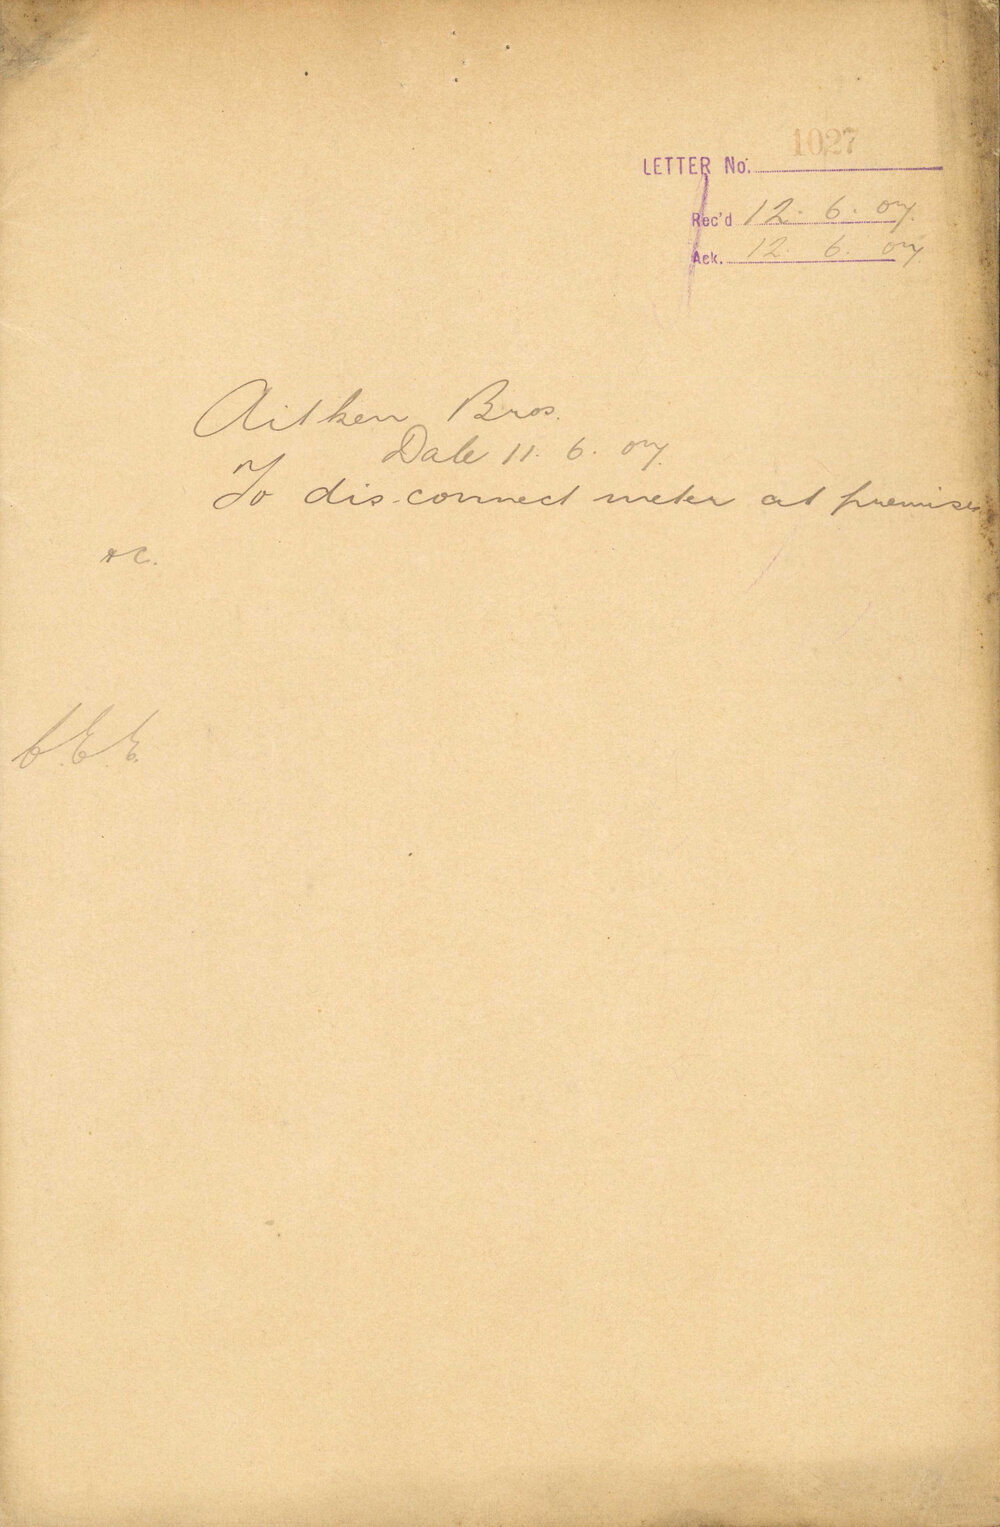 1027
LETTER No.
Rec'd 12. 6. 07.
Ack. 12. 6. 07
Aitken Bros.
Date 11. 6. 07.
To dis-connect meter at premises
&c.
C.E.E.